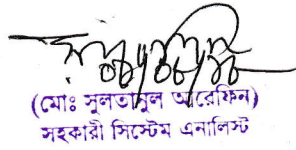 (মোঃ সুলতানুল আরেফিন)
সহকারী সিস্টেম এনালিস্ট